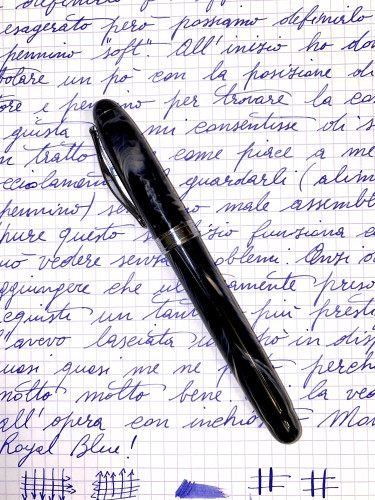 definirlo
esagerato però possiamo definirlo
pennino "soft". All'inizio ho dov
olare un pò con la posizione di
ore e pennino per trovare la co
giusta mi consentisse di s
n tratto come piace a me
cciolamento guardarli (alim
pennino) se male assembl
pure questo funziona
vedere senza oblemi. Anzi
aggiungere che amente preso
cquisti un tant più prest
l'avevo lasciata pò in dis
uasi quasi me ne perch
molto molto bene. la ve
all'opera con inchio Mon
Royal Blue!